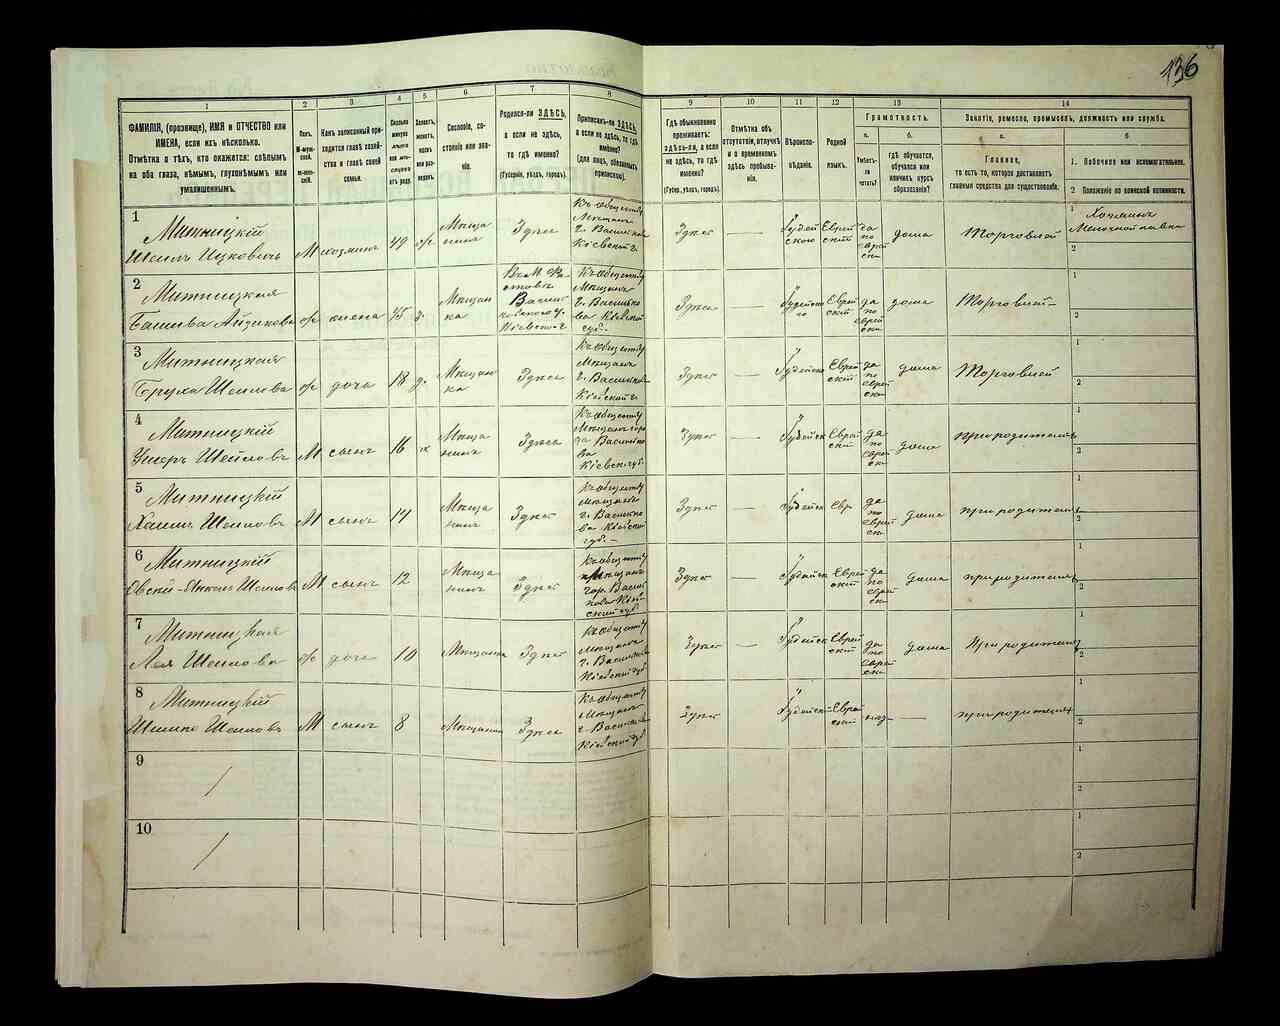 136
1
2
3
4
5
6
7
8
9
10
11
12
13
14
ФАМИЛІЯ, (прозвище), ИМЯ и ОТЧЕСТВО или
ИМЕНА, если ихъ нѣсколько.
Отмѣтка о тѣхъ, кто окажется: слѣпымъ
на оба глаза, нѣмымъ, глухонѣмымъ или
умалишеннымъ.
Полъ.
М-муж-
ской.
Ж-жен-
скій.
Какъ записанный при-
ходится главѣ хозяй-
ства и главѣ своей
семьи.
Сколько
минуло
лѣтъ
или мѣ-
сяцевъ
отъ роду.
Холостъ,
женатъ,
вдовъ
или раз-
веденъ.
Сословіе, со-
стояніе или зва-
ніе.
Родился-ли ЗДѢСЬ,
а если не здѣсь,
то гдѣ именно?
(Губернія, уѣздъ, городъ).
Приписанъ-ли ЗДѢСЬ,
а если не здѣсь, то гдѣ
именно?
(для лицъ, обязанныхъ
припискою).
Гдѣ обыкновенно
проживаетъ:
здѣсь-ли, а если
не здѣсь, то гдѣ
именно?
(Губер., уѣздъ, городъ).
Отмѣтка объ
отсутствіи, отлучкѣ
и о временномъ
здѣсь пребыва-
ніи.
Вѣроиспо-
вѣданіе.
Родной
языкъ.
Грамотность.
а.
Умѣетъ-
ли
читать?
б.
гдѣ обучается,
обучался или
кончилъ курсъ
образованія?
Занятіе, ремесло, промыселъ, должность или служба.
а.
Главное,
то есть то, которое доставляетъ
главныя средства для существованія.
б
1. Побочное или вспомогательное.
2 Положеніе по воинской повинности.
1
Митницкій
Шеилъ Ицковичъ
М
хозяинъ
49
Мѣща
нинъ
Здѣсь
Къ обществу
Мѣщанъ
г. Василькова
Кіевской г.
Здѣсь
—
Іудей
скою
Еврей
скій
да
по
еврей
ски
дома
Торговлей
1
Мелочной лавки
2
2
Митницкая
М
жена
45
Мѣщан
ка
Къ обществу
Мѣщанъ
г. Василько
ва Кіевской
губ.
Здѣсь
—
Еврей
скій
да
по
еврей
ски
дома
Торговлей
1
2
3
Митницкая
Бруха Шеилова
ж
дочь
18
Мѣщан
ка
Здѣсь
Къ обществу
Мѣщанъ
г. Василькова
Кіевской г.
Здѣсь
—
Іудейск
Еврей
скій
да
по
еврей
ски
дома
Торговлей
1
2
4
Митницкій
М
сынъ
16
х
Мѣща
нинъ
Здѣсь
Къ обществу
Мѣщанъ горо
да Василько
ва
Кіевск. губ.
Здѣсь
—
Іудейск
Еврей
скій
да
по
еврей
ски
дома
при родителяхъ
1
2
5
Митницкій
Хаимъ Шеиловъ
М
сынъ
14
Мѣща
нинъ
Здѣсь
Къ обществу
мѣщанъ
г. Василько
ва Кіевской
губ. —
Здѣсь
—
Іудейск
Евр
да
по
еврей
ски
дома
при родителяхъ
1
2
6
Митницкій
М
сынъ
12
Мѣща
нинъ
Здѣсь
Къ обществу
мѣщанъ
гор. Василь
кова Кіев
ской губ.
Здѣсь
—
Іудейск
Еврей
скій
да
по
еврей
ски
дома
при родителяхъ
1
2
7
Митницкая
Лея Шеилова
ж
дочь
10
Мѣщанка
Здѣсь
Къ обществу
Мѣщанъ
г. Василькова
Кіевской губ.
Здѣсь
—
Іудейск
Еврей
скій
да
по
еврей
ски
дома
При родителяхъ
1
2
8
Митницкій
М
сынъ
8
Мѣщанинъ
Здѣсь
Къ обществу
Мѣщанъ
г. Василькова
Кіевской губ
Здѣсь
—
Іудейск
Еврей
скій
—
при родителяхъ
1
2
9
1
2
10
1
2